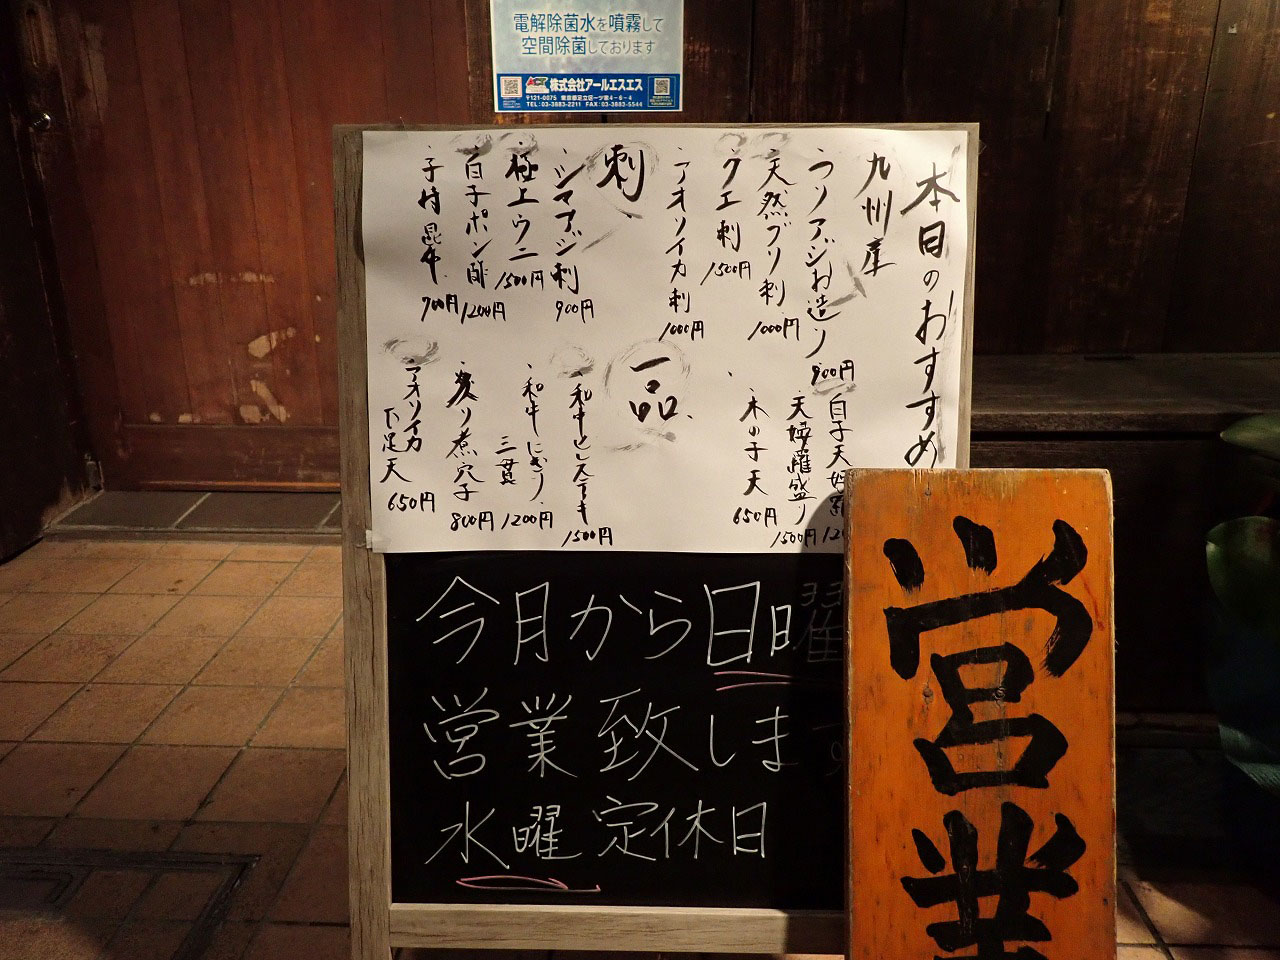 電解除菌水を噴霧して
空間除菌しております
株式会社アールエスエス
〒121-0075 東京都足立区一ツ家4-6-4
TEL:03-3883-2211 FAX:03-3883-5544
本日のおすすめ
九州産
・ツソアジお造り 900円
・天然ブリ刺 1000円
・クエ刺 1500円
・アオリイカ刺 1000円
刺
・シマアジ刺 900円
・極上ウニ 1500円
・白子ポン酢 1200円
・子持昆布 700円
・白子天婦羅
・天婦羅盛り 1500円
・木の子天 650円
一品
・和牛 1500円
・和牛にぎり 三貫 1200円
・炙り煮穴子 800円
・アオリイカ下足天 650円
今月から日曜
営業致します
水曜定休日
営業